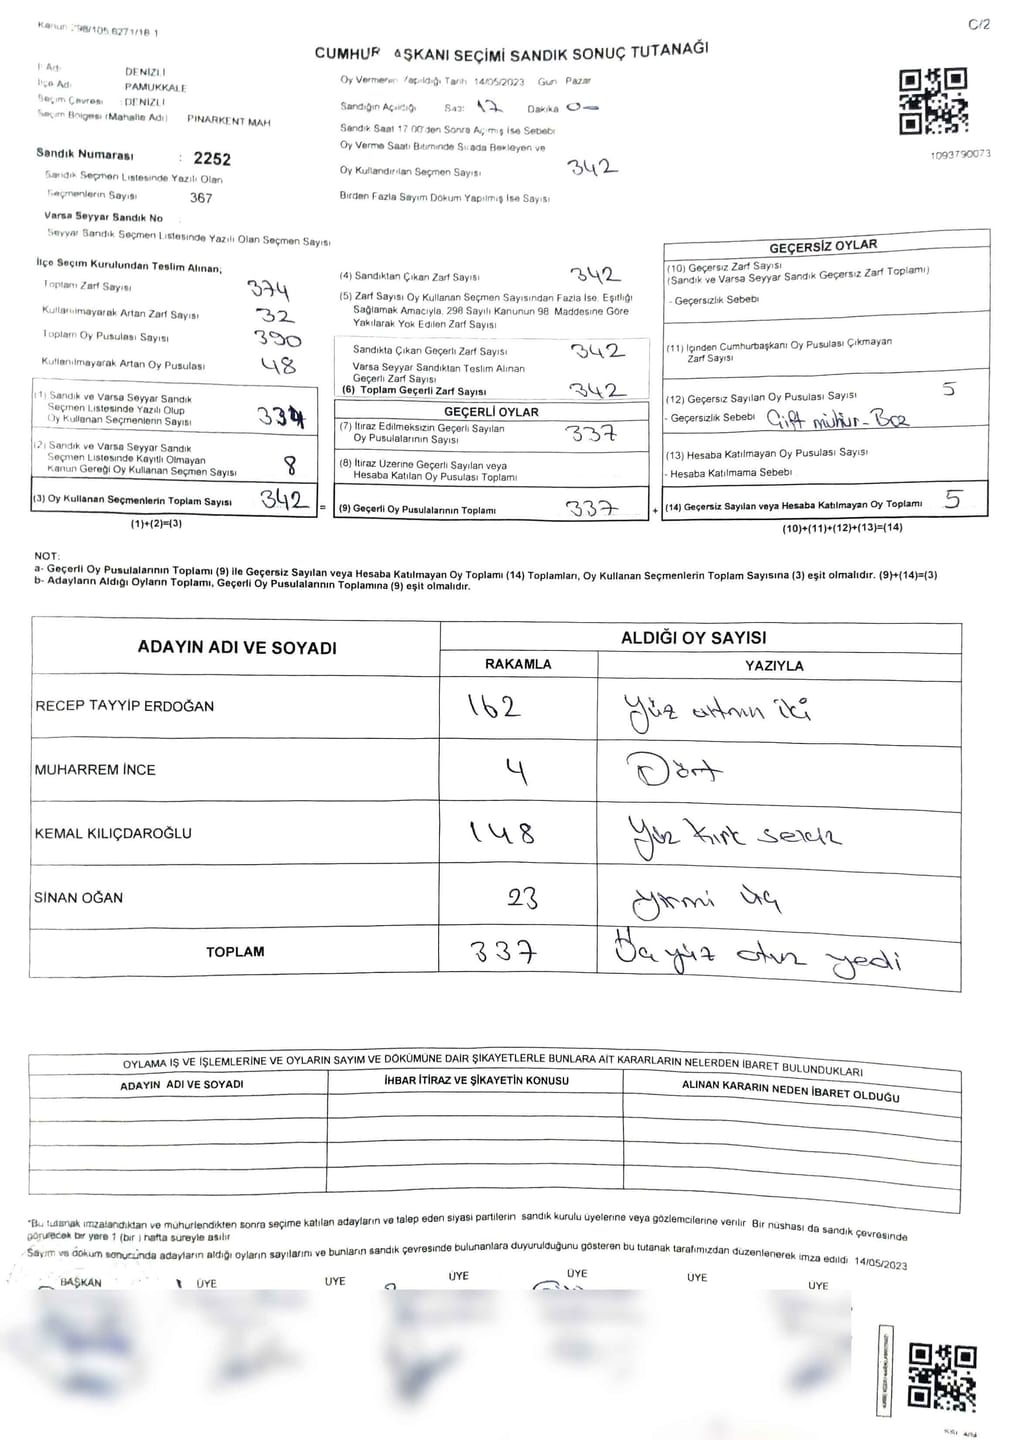 Kanun : 298/105 6271/18 1
C/2
CUMHUR AŞKANI SEÇİMİ SANDIK SONUÇ TUTANAĞI
İl Adı DENİZLİ
İlçe Adı PAMUKKALE
Seçim Çevresi : DENİZLİ
Seçim Bölgesi (Mahalle Adı) PINARKENT MAH
Sandık Numarası : 2252
Sandık Seçmen Listesinde Yazılı Olan
Seçmenlerin Sayısı 367
Varsa Seyyar Sandık No
Seyyar Sandık Seçmen Listesinde Yazılı Olan Seçmen Sayısı
Oy Vermenin Yapıldığı Tarih 14/05/2023 Gün Pazar
Sandığın Açıldığı Saat 17 Dakika 0
Sandık Saat 17 00'den Sonra Açmış İse Sebebi
Oy Verme Saati Bitiminde Sırada Bekleyen ve
Oy Kullandırılan Seçmen Sayısı 342
Birden Fazla Sayım Döküm Yapılmış İse Sayısı
1093790073
İlçe Seçim Kurulundan Teslim Alınan;
Toplam Zarf Sayısı 374
Kullanılmayarak Artan Zarf Sayısı 32
Toplam Oy Pusulası Sayısı 390
Kullanılmayarak Artan Oy Pusulası 48
(1) Sandık ve Varsa Seyyar Sandık
Seçmen Listesinde Yazılı Olup
Oy Kullanan Seçmenlerin Sayısı 334
(2) Sandık ve Varsa Seyyar Sandık
Seçmen Listesinde Kayıtlı Olmayan
Kanun Gereği Oy Kullanan Seçmen Sayısı 8
(3) Oy Kullanan Seçmenlerin Toplam Sayısı 342 =
(1)+(2)=(3)
(4) Sandıktan Çıkan Zarf Sayısı 342
(5) Zarf Sayısı Oy Kullanan Seçmen Sayısından Fazla İse, Eşitliği
Sağlamak Amacıyla, 298 Sayılı Kanunun 98 Maddesine Göre
Yakılarak Yok Edilen Zarf Sayısı
Sandıkta Çıkan Geçerli Zarf Sayısı 342
Varsa Seyyar Sandıktan Teslim Alınan
Geçerli Zarf Sayısı
(6) Toplam Geçerli Zarf Sayısı 342
GEÇERLİ OYLAR
(7) İtiraz Edilmeksizin Geçerli Sayılan
Oy Pusulalarının Sayısı 337
(8) İtiraz Üzerine Geçerli Sayılan veya
Hesaba Katılan Oy Pusulası Toplamı
(9) Geçerli Oy Pusulalarının Toplamı 337 +
GEÇERSİZ OYLAR
(10) Geçersiz Zarf Sayısı
(Sandık ve Varsa Seyyar Sandık Geçersiz Zarf Toplamı)
- Geçersizlik Sebebi
(11) İçinden Cumhurbaşkanı Oy Pusulası Çıkmayan
Zarf Sayısı
(12) Geçersiz Sayılan Oy Pusulası Sayısı 5
- Geçersizlik Sebebi Çift mühür - Boz
(13) Hesaba Katılmayan Oy Pusulası Sayısı
- Hesaba Katılmama Sebebi
(14) Geçersiz Sayılan veya Hesaba Katılmayan Oy Toplamı 5
(10)+(11)+(12)+(13)=(14)
NOT:
a- Geçerli Oy Pusulalarının Toplamı (9) ile Geçersiz Sayılan veya Hesaba Katılmayan Oy Toplamı (14) Toplamları, Oy Kullanan Seçmenlerin Toplam Sayısına (3) eşit olmalıdır. (9)+(14)=(3)
b- Adayların Aldığı Oyların Toplamı, Geçerli Oy Pusulalarının Toplamına (9) eşit olmalıdır.
ADAYIN ADI VE SOYADI
ALDIĞI OY SAYISI
RAKAMLA YAZIYLA
RECEP TAYYİP ERDOĞAN 162 Yüz altmış iki
MUHARREM İNCE 4 Dört
KEMAL KILIÇDAROĞLU 148 Yüz Kırk sekiz
SİNAN OĞAN 23 yirmi üç
TOPLAM 337 Üç yüz otuz yedi
OYLAMA İŞ VE İŞLEMLERİNE VE OYLARIN SAYIM VE DÖKÜMÜNE DAİR ŞİKAYETLERLE BUNLARA AİT KARARLARIN NELERDEN İBARET BULUNDUKLARI
ADAYIN ADI VE SOYADI İHBAR İTİRAZ VE ŞİKAYETİN KONUSU ALINAN KARARIN NEDEN İBARET OLDUĞU
*Bu tutanak imzalandıktan ve mühürlendikten sonra seçime katılan adayların ve talep eden siyasi partilerin sandık kurulu üyelerine veya gözlemcilerine verilir Bir nüshası da sandık çevresinde
görülecek bir yere 1 (bir ) hafta süreyle asılır
Sayım ve döküm sonucunda adayların aldığı oyların sayılarını ve bunların sandık çevresinde bulunanlara duyurulduğunu gösteren bu tutanak tarafımızdan düzenlenerek imza edildi 14/05/2023
BAŞKAN ÜYE ÜYE ÜYE ÜYE ÜYE ÜYE